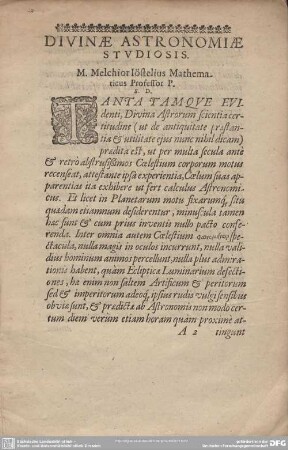 DIVINÆ ASTRONOMIÆ
STVDIOSIS.
M. Melchior Iöstelius Mathema-
ticus Professor P.
S. D.
TANTA TAMQVE EVI
denti, Divina Astrorum scientia cer-
titudine (ut de antiquitate præstan-
tia & utilitate ejus nunc nihil dicam)
prædita est, ut per multa secula ante
& retrò abstrusissimos Cœlestium corporum motus
recenseat, attestante ipsa experientia, Cœlum suas ap-
parentias ita exhibere ut fert calculus Astronomi-
cus. Et licet in Planetarum motu fixarumq; situ
quædam etiamnum desiderentur, minuscula tamen
hæc sunt & cum prius inventis nullo pacto confe-
renda. Inter omnia autem Cœlestium spe-
ctacula, nulla magis in oculos incurrunt, nulla vali-
dius hominum animos percellunt, nulla plus admira-
tionis habent, quàm Eclipticæ Luminarium defectio-
nes, hæ enim non saltem Artificum & peritorum
sed & imperitorum adeoq; ipsius rudis vulgi sensibus
obviæ sunt, & prædictæ ab Astronomis non modo cer-
tum diem verùm etiam horam quàm proximè at-
A 2 tingunt